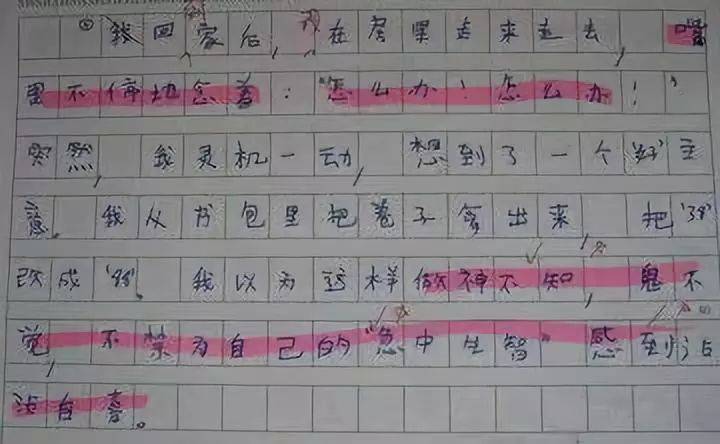 ④我回到家后,我在房里走来走去,嘴
里不停地念着:“怎么办!怎么办!”
突然,我灵机一动,想到了一个“好”主
意。我从书包里把卷子拿出来,把“38”
改成“88”。我以为这样做神不知,鬼不
觉,不禁为自己的“急中生智”感到沾
沾自喜。